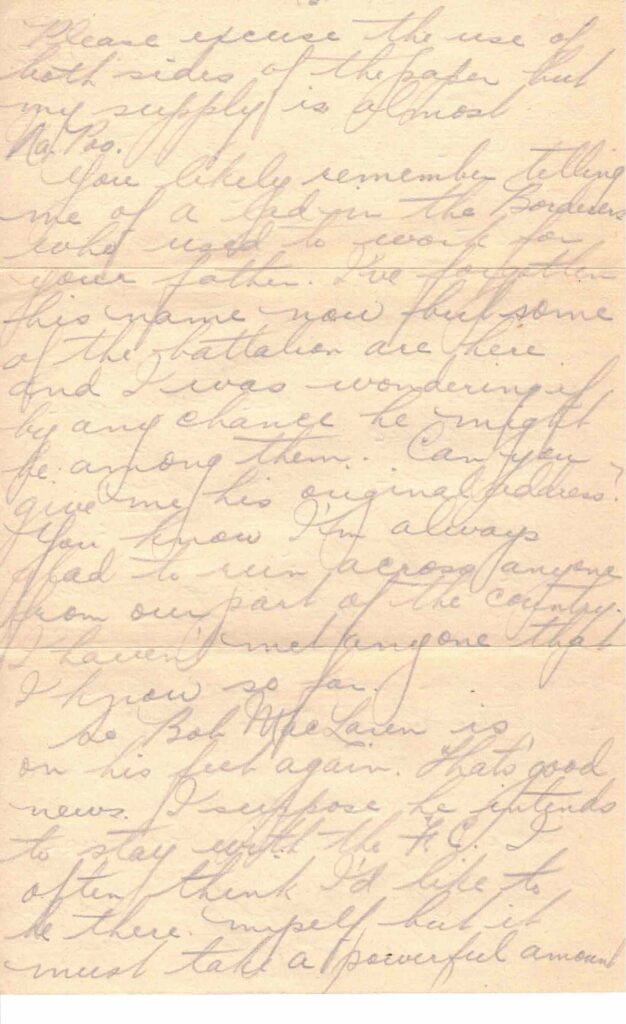 Please excuse the use of
both sides of the paper but
my supply is almost
Na. Poo.
You likely remember telling
me of a lad in the Borderers
who used to work for
your father. I've forgotten
his name now but some
of the battalion are here
and I was wondering if
by any chance he might
be among them. Can you
give me his original address?
You know I'm always
glad to run across anyone
from our part of the country.
I haven't met anyone that
I know so far.
So Bob MacLaren is
on his feet again. That's good
news. I suppose he intends
to stay with the F.C. I
often think I'd like to
be there myself but it
must take a powerful amount